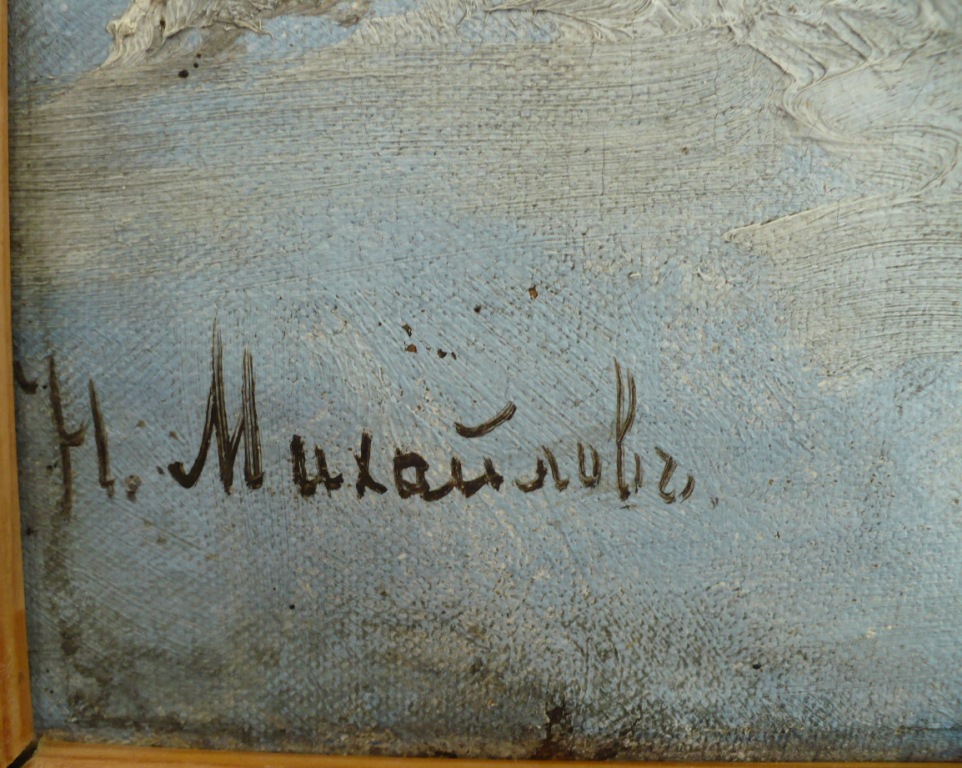 Н. Михайловъ